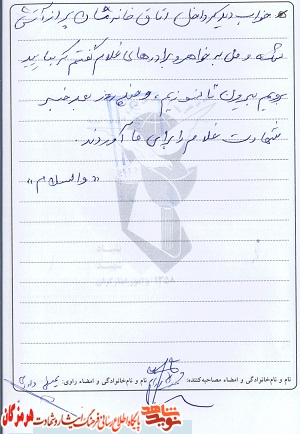 خواب دیدم داخل اتاق خانه‌مان پر از آتش
شده و من به خواهر و برادرهای غلام گفتم که بیایید
برویم بیرون تا نسوزیم، و چند روز بعد خبر
شهادت غلام را برای ما آوردند.
«والسلام»
۱۳۵۸
نام و نام خانوادگی و امضاء مصاحبه کننده:
نام و نام خانوادگی و امضاء راوی:
نوید شاهد
پایگاه اطلاع رسانی فرهنگ ایثار و شهادت هرمزگان